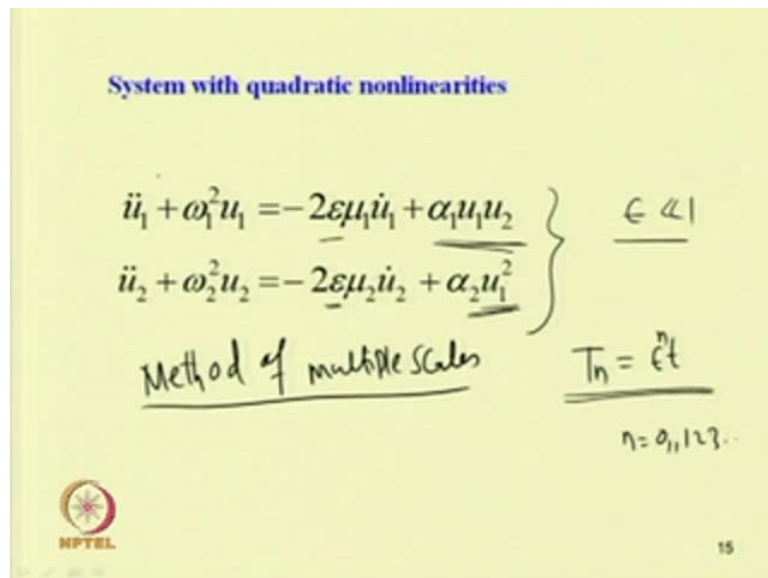 System with quadratic nonlinearities
ü₁ + ω₁²u₁ = −2εμ₁u̇₁ + α₁u₁u₂
ϵ ≪ 1
ü₂ + ω₂²u₂ = −2εμ₂u̇₂ + α₂u₁²
Method of multiple scales
Tₙ = ϵⁿt
n = 0,,123..
NPTEL
15